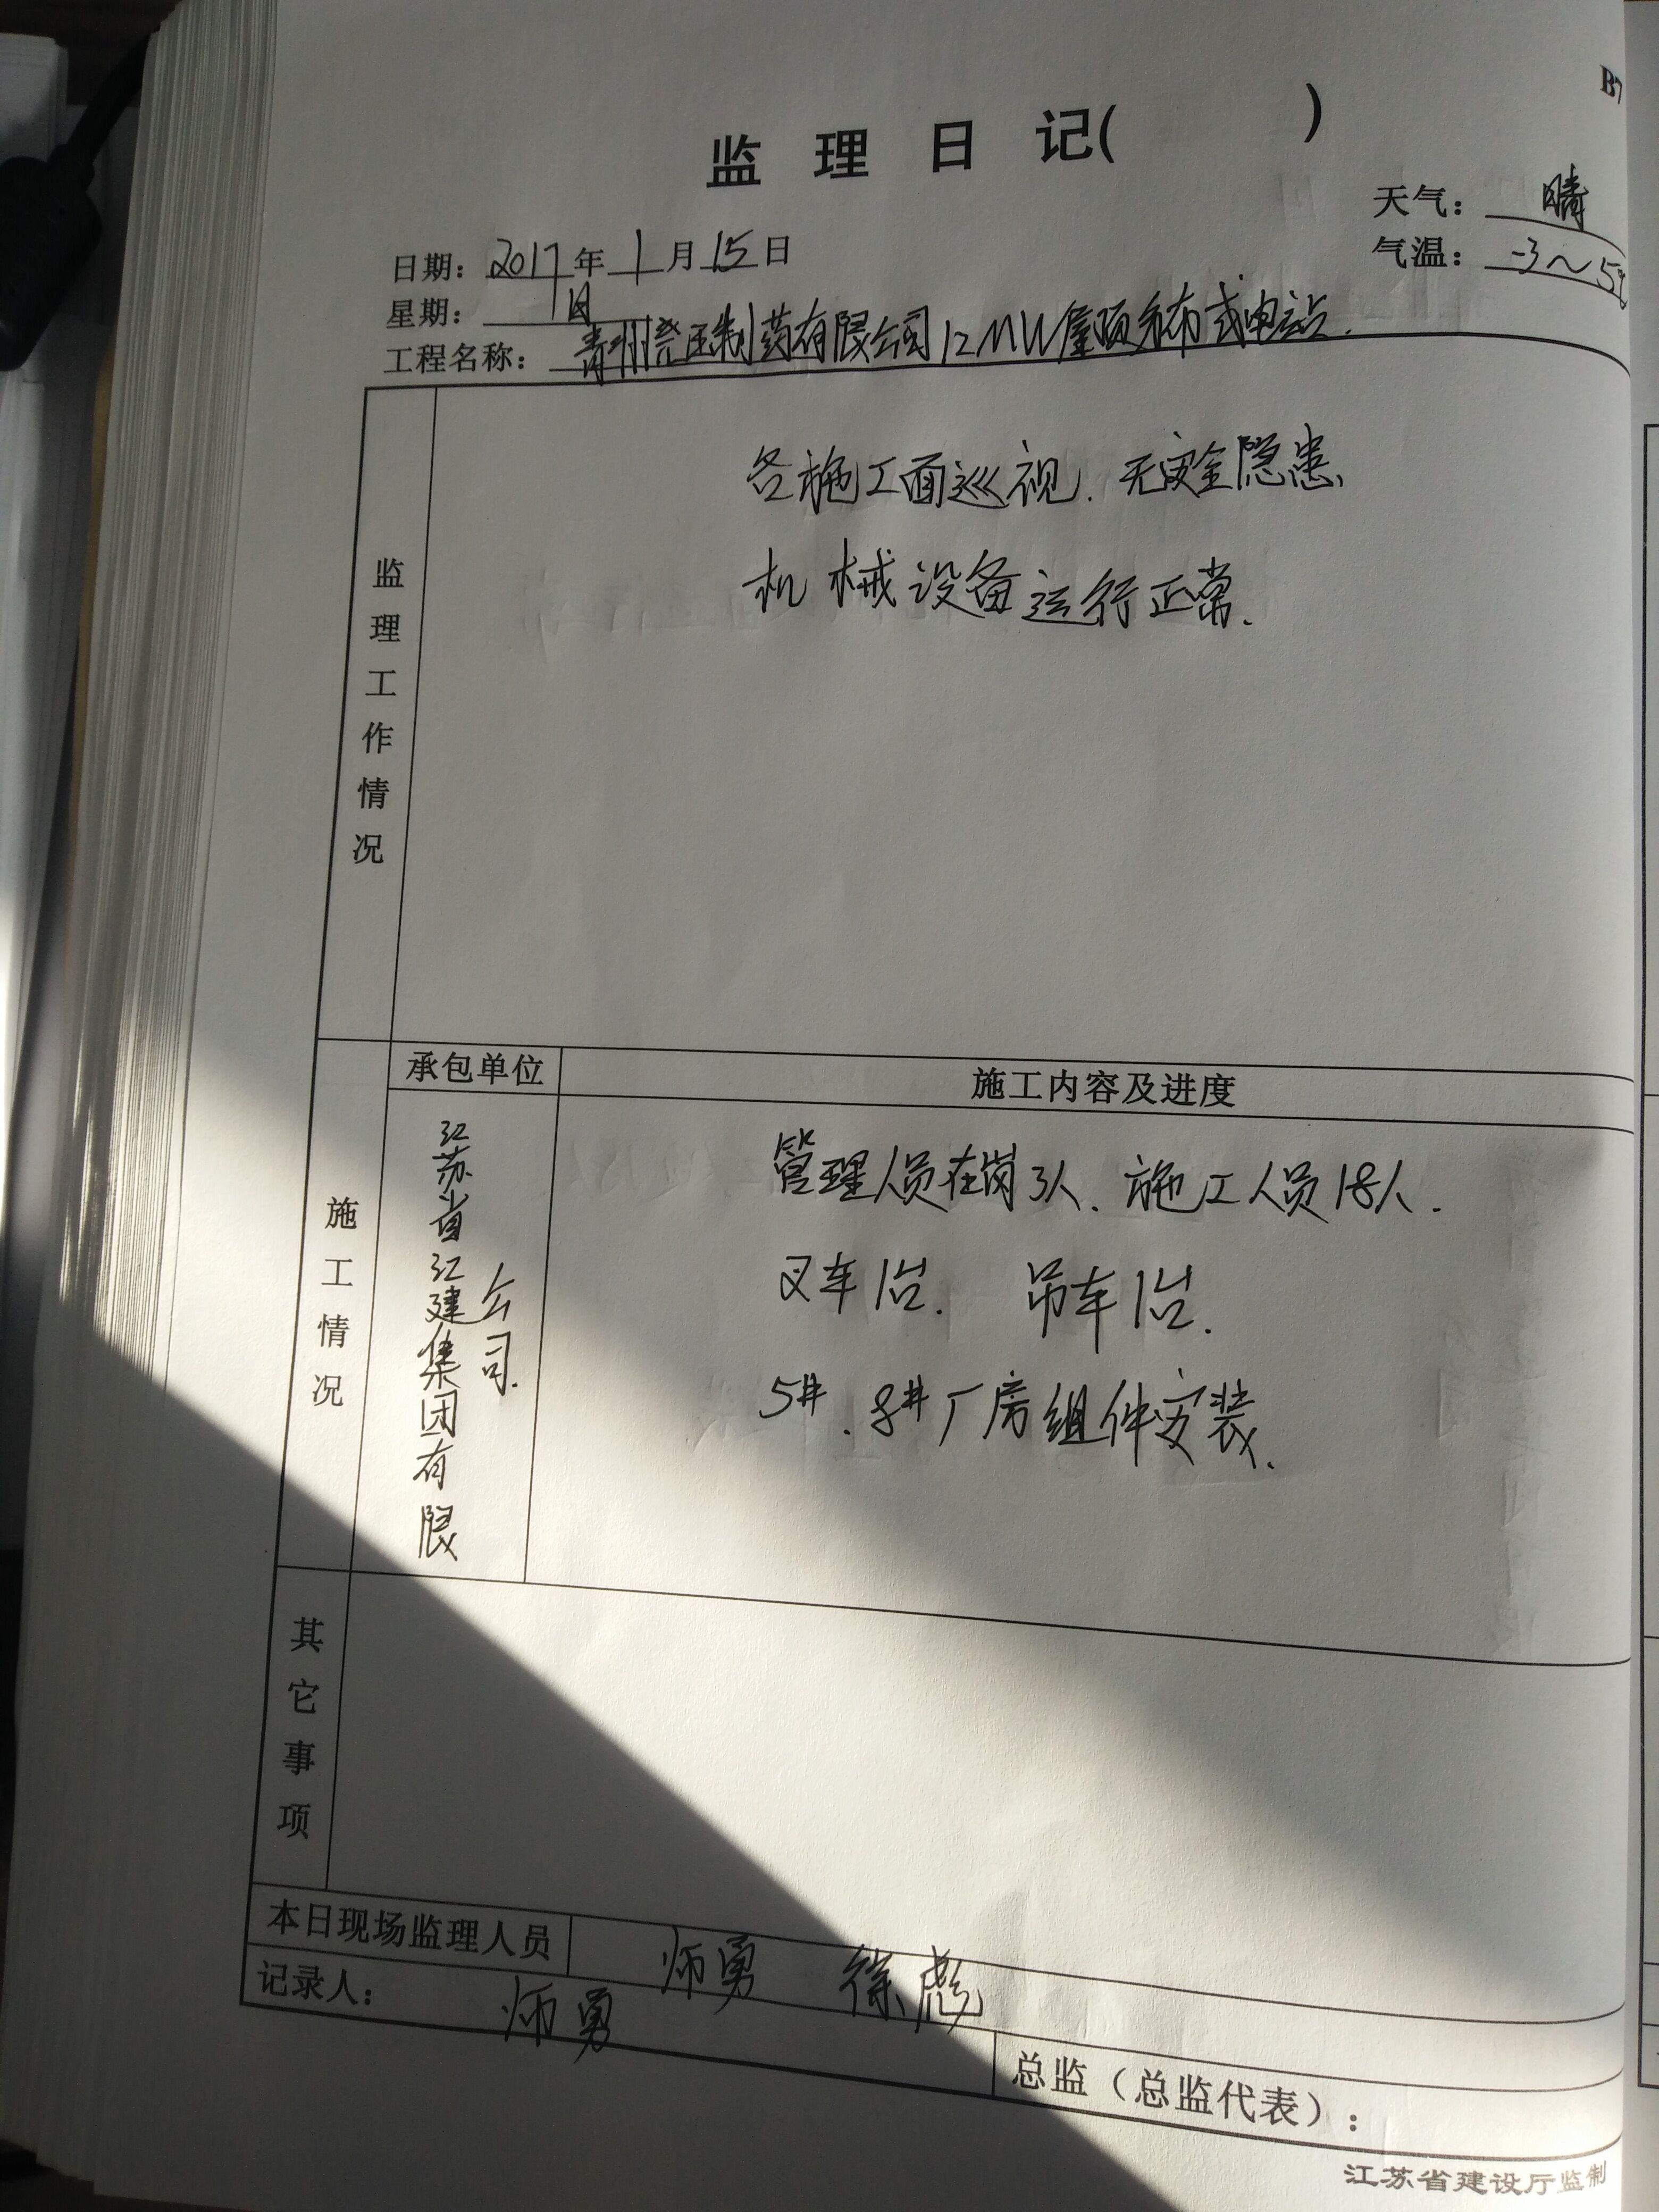 B7
监理日记( )
天气：晴
日期：2017年1月15日
气温：-3～5℃
星期：日
工程名称：青州尧王制药有限公司12MW屋顶分布式电站.
监理工作情况
各施工面巡视.无安全隐患、
机械设备运行正常.
施工情况
承包单位
施工内容及进度
江苏省江建集团有限
公司.
管理人员在岗3人、施工人员18人.
叉车1台. 吊车1台.
5#、8#厂房组件安装.
其它事项
本日现场监理人员 师勇 徐彪
记录人：师勇
总监（总监代表）：
江苏省建设厅监制